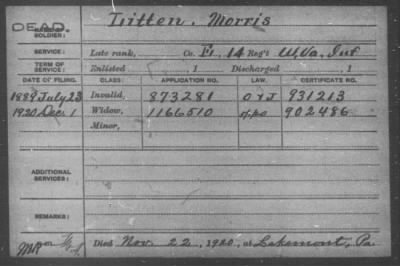 DEAD. Litten. Morris
NAME OF SOLDIER:
SERVICE: Late rank, Co. E, 14 Reg't W.Va. Inf
TERM OF SERVICE: Enlisted , 1 Discharged , 1
DATE OF FILING. CLASS: APPLICATION NO. LAW. CERTIFICATE NO.
1889 July 23 Invalid, 873281 931213
1920 Dec. 1 Widow, 1166510 902486
Minor,
ADDITIONAL SERVICES:
REMARKS:
Died Nov. 22, 1920, at Lakemont, Pa